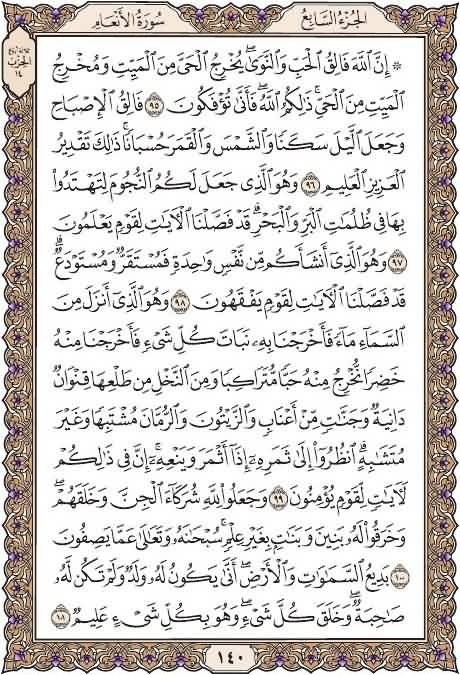 الجزء السابع
سورة الأنعام
ثلاثة أرباع
الحزب
١٤
۞ إِنَّ ٱللَّهَ فَالِقُ ٱلْحَبِّ وَٱلنَّوَىٰۖ يُخْرِجُ ٱلْحَىَّ مِنَ ٱلْمَيِّتِ وَمُخْرِجُ
ٱلْمَيِّتِ مِنَ ٱلْحَىِّۚ ذَٰلِكُمُ ٱللَّهُۖ فَأَنَّىٰ تُؤْفَكُونَ ٩٥ فَالِقُ ٱلْإِصْبَاحِ
وَجَعَلَ ٱلَّيْلَ سَكَنًا وَٱلشَّمْسَ وَٱلْقَمَرَ حُسْبَانًاۚ ذَٰلِكَ تَقْدِيرُ
ٱلْعَزِيزِ ٱلْعَلِيمِ ٩٦ وَهُوَ ٱلَّذِى جَعَلَ لَكُمُ ٱلنُّجُومَ لِتَهْتَدُوا۟
بِهَا فِى ظُلُمَٰتِ ٱلْبَرِّ وَٱلْبَحْرِۗ قَدْ فَصَّلْنَا ٱلْءَايَٰتِ لِقَوْمٍ يَعْلَمُونَ
٩٧ وَهُوَ ٱلَّذِىٓ أَنشَأَكُم مِّن نَّفْسٍ وَٰحِدَةٍ فَمُسْتَقَرٌّ وَمُسْتَوْدَعٌۗ
قَدْ فَصَّلْنَا ٱلْءَايَٰتِ لِقَوْمٍ يَفْقَهُونَ ٩٨ وَهُوَ ٱلَّذِىٓ أَنزَلَ مِنَ
ٱلسَّمَآءِ مَآءً فَأَخْرَجْنَا بِهِۦ نَبَاتَ كُلِّ شَىْءٍ فَأَخْرَجْنَا مِنْهُ
خَضِرًا نُّخْرِجُ مِنْهُ حَبًّا مُّتَرَاكِبًا وَمِنَ ٱلنَّخْلِ مِن طَلْعِهَا قِنْوَانٌ
دَانِيَةٌ وَجَنَّٰتٍ مِّنْ أَعْنَابٍ وَٱلزَّيْتُونَ وَٱلرُّمَّانَ مُشْتَبِهًا وَغَيْرَ
مُتَشَٰبِهٍۗ ٱنظُرُوٓا۟ إِلَىٰ ثَمَرِهِۦٓ إِذَآ أَثْمَرَ وَيَنْعِهِۦٓۚ إِنَّ فِى ذَٰلِكُمْ
لَءَايَٰتٍ لِّقَوْمٍ يُؤْمِنُونَ ٩٩ وَجَعَلُوا۟ لِلَّهِ شُرَكَآءَ ٱلْجِنَّ وَخَلَقَهُمْۖ
وَخَرَقُوا۟ لَهُۥ بَنِينَ وَبَنَٰتٍۭ بِغَيْرِ عِلْمٍۚ سُبْحَٰنَهُۥ وَتَعَٰلَىٰ عَمَّا يَصِفُونَ
١٠٠ بَدِيعُ ٱلسَّمَٰوَٰتِ وَٱلْأَرْضِۖ أَنَّىٰ يَكُونُ لَهُۥ وَلَدٌ وَلَمْ تَكُن لَّهُۥ
صَٰحِبَةٌۖ وَخَلَقَ كُلَّ شَىْءٍۖ وَهُوَ بِكُلِّ شَىْءٍ عَلِيمٌ ١٠١
١٤٠